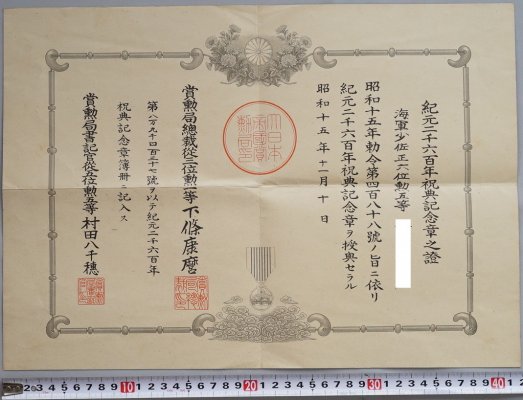 紀元二千六百年祝典記念章之證
海軍少佐正六位勲五等
昭和十五年勅令第四百八十八號ノ旨ニ依リ
紀元二千六百年祝典記念章ヲ授與セラル
昭和十五年十一月十日
大日本
帝國賞
勲局印
賞勲局總裁從三位勲一等下條康麿
第八万九千四百三十七號ヲ以テ紀元二千六百年
祝典記念章簿冊ニ記入ス
賞勲局書記官從五位勲五等村田八千穂
1 2 3 4 5 6 7 8 9 10 1 2 3 4 5 6 7 8 9 20 1 2 3 4 5 6 7 8 9 30 1 2 3 4 5 6 7 8 9 40 1